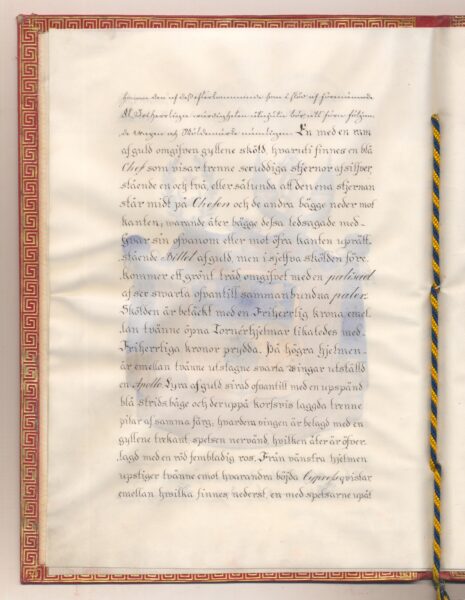 honom den af desse förekommande som i stöd af förmånade
Friherrliga värdigheten åtnjuter bör ett före följan
de wapen och Sköldemärke nämligen En med en ram
af guld omgifven gyllene sköld, hvaruti finnes en blå
Chef som visar trenne sexuddiga stjernor af silfver,
stående en och två, eller sålunda att den ena stjernan
står midt på Chefen och de andra bägge neder mot
kanten; warande åter bägge dessa ledsagade med
hvar sin ofvanom eller mot öfra kanten upprätt
stående Billet af guld, men i sjelfva skölden före
kommer ett grönt träd omgifvet med en palisad
af sex swarta ofvantill sammanbundna palar.
Skölden är betäckt med en Friherrlig krona emel
lan tvänne öpna Tornérhjelmar likaledes med
Friherrliga kronor prydda. På högra hjelmen
är emellan tvänne utslagne svarta wingar utställd
en Apollo Lyra af guld sirad ofvantill med en uppspänd
blå stridsbåge och deruppå korsvis laggda trenne
pilar af samma färg; hvardera vingen är belagd med en
gyllene trekant, spetsen nervänd, hvilken åter är öfver
lagd med en röd fembladig ros. Från vänstra hjelmen
uppstiger tvänne emot hvarandra böjda Cypressqvistar
emellan hwilka finnes, nederst, en med spetsarne upåt